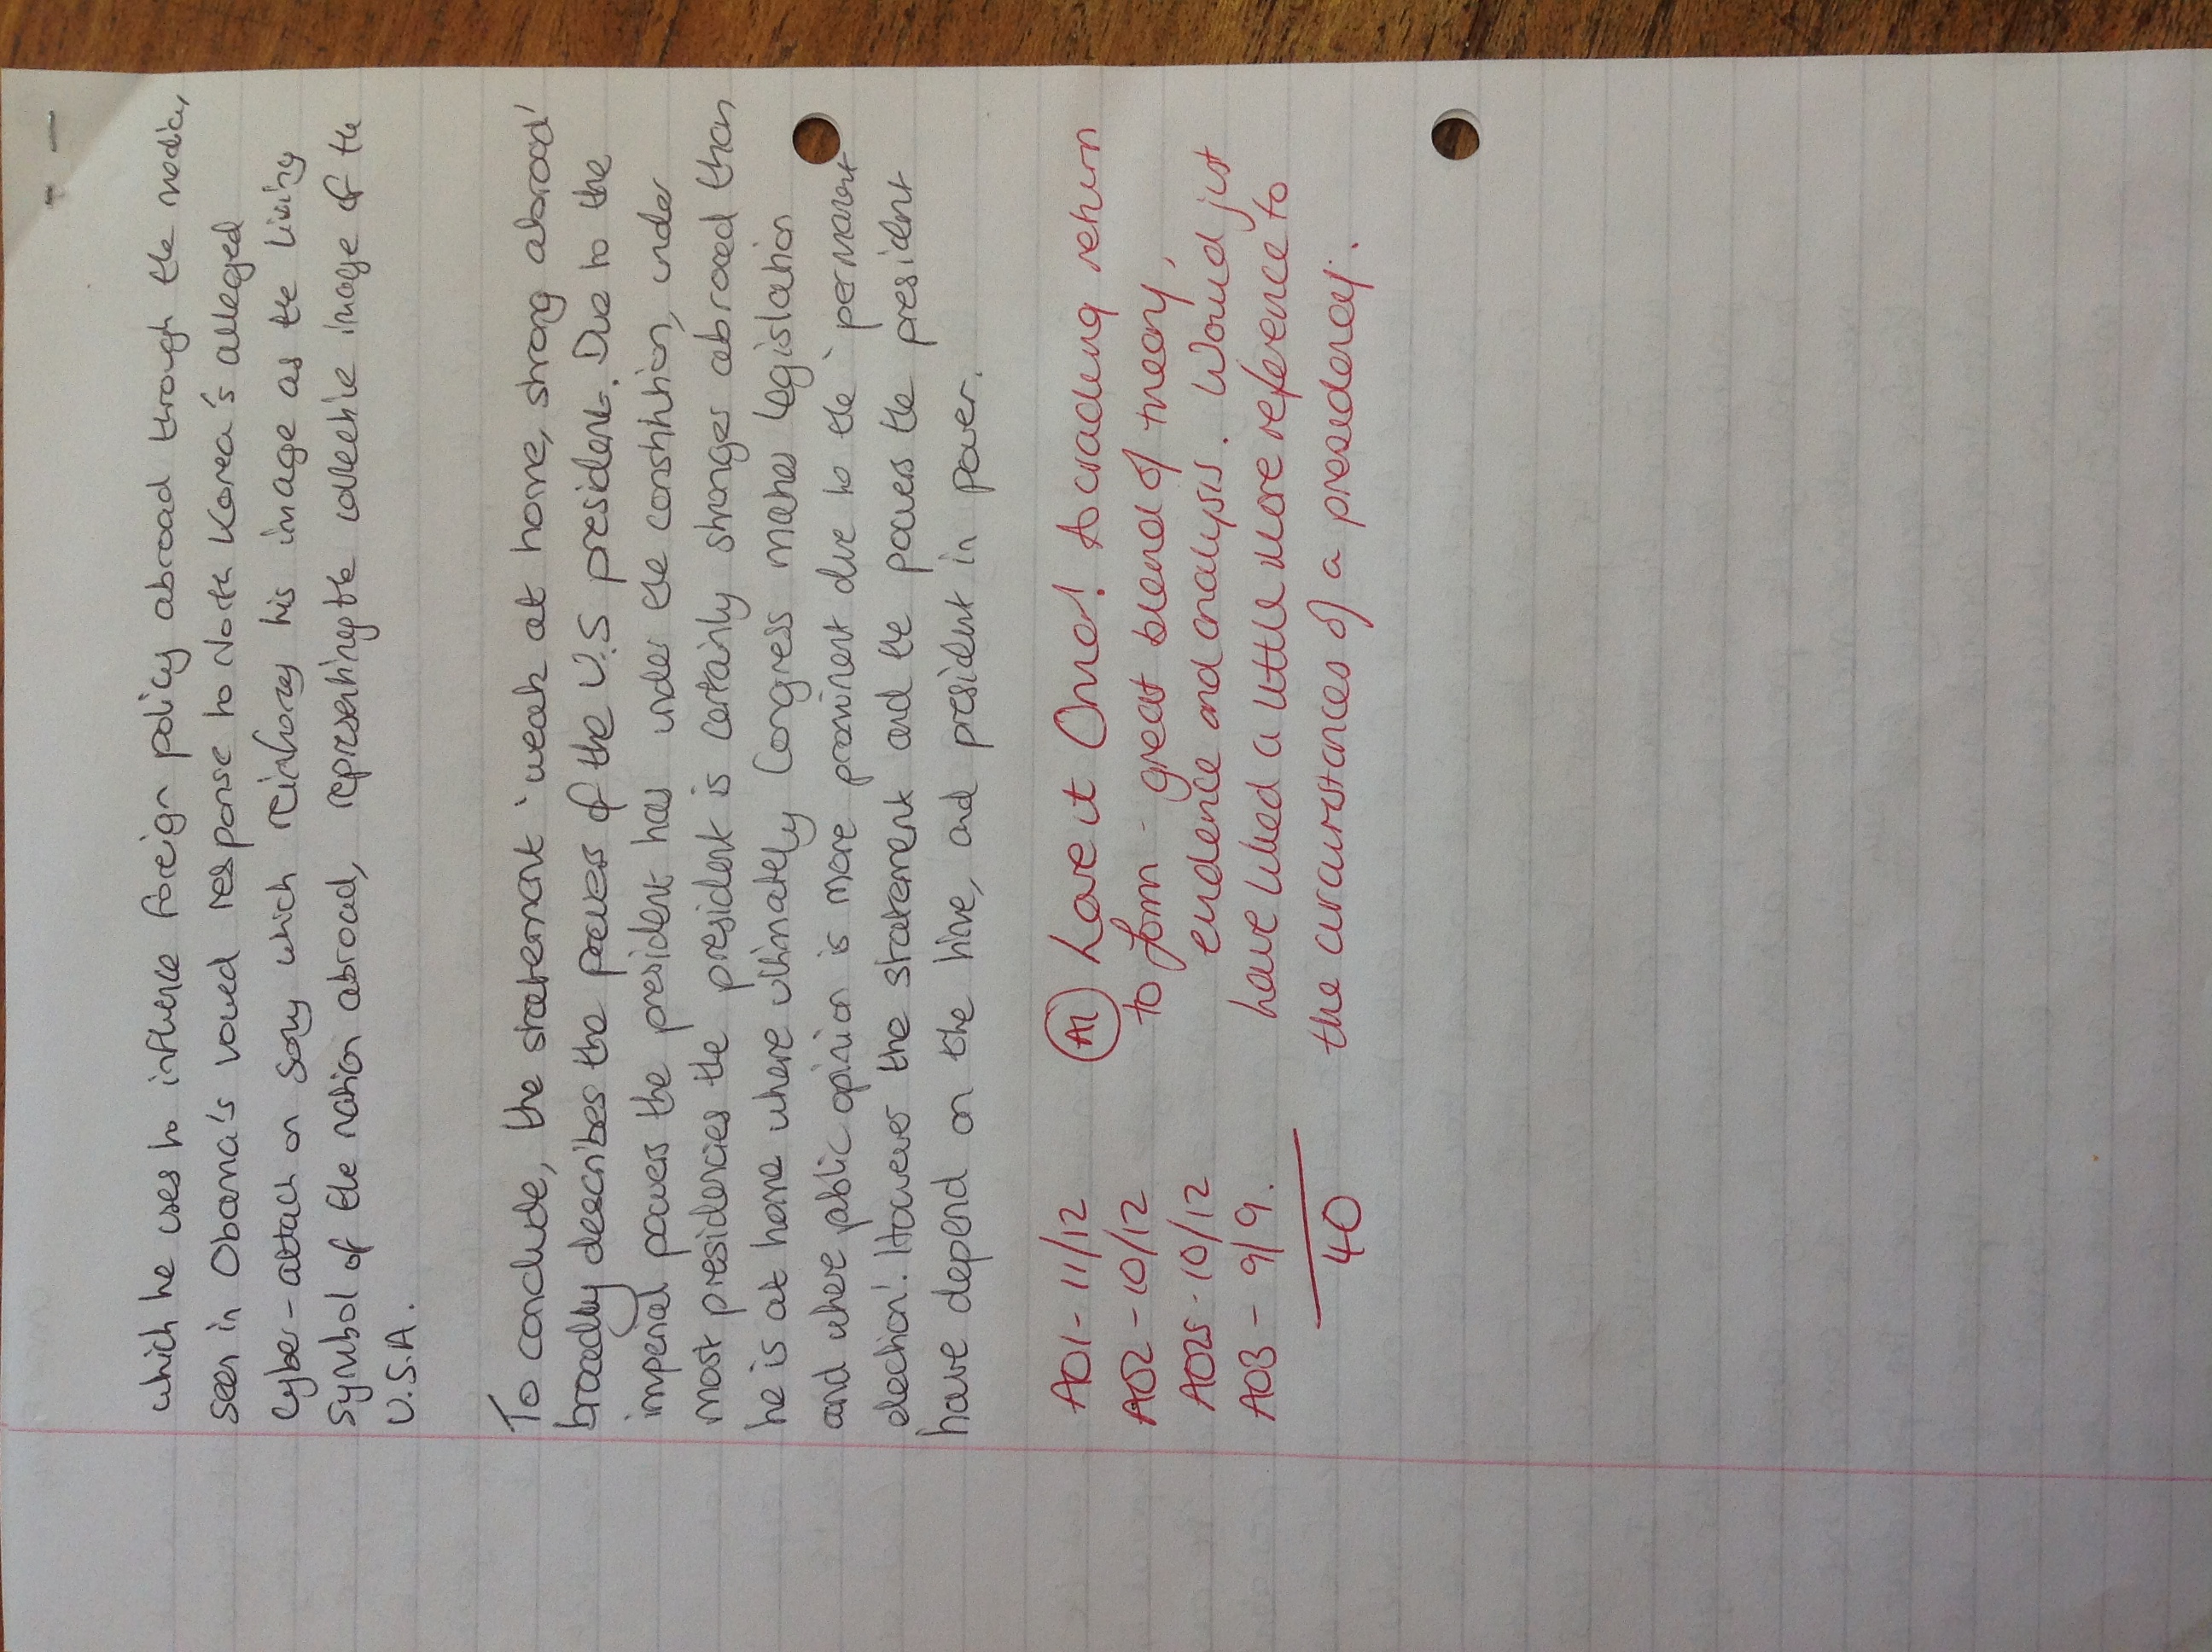 which he uses to influence foreign policy abroad through the media,
seen in Obama's vowed response to North Korea's alleged
cyber-attack on Sony which reinforces his image as the living
symbol of the nation abroad, representing the collective image of the
U.S.A.
To conclude, the statement 'weak at home, strong abroad'
broadly describes the powers of the U.S president. Due to the
imperial powers the president has under the constitution, under
most presidencies the president is certainly stronger abroad than
he is at home where ultimately Congress makes legislation
and where public opinion is more prominent due to the 'permanent
election'. However the statement and the powers the president
have depend on the time, and president in power.
A1 Love it Omo! A cracking return
to form - great blend of theory,
evidence and analysis. Would just
have liked a little more reference to
the circumstances of a presidency.
AO1 - 11/12
AO2 - 10/12
AO2S - 10/12
AO3 - 9/9.
40